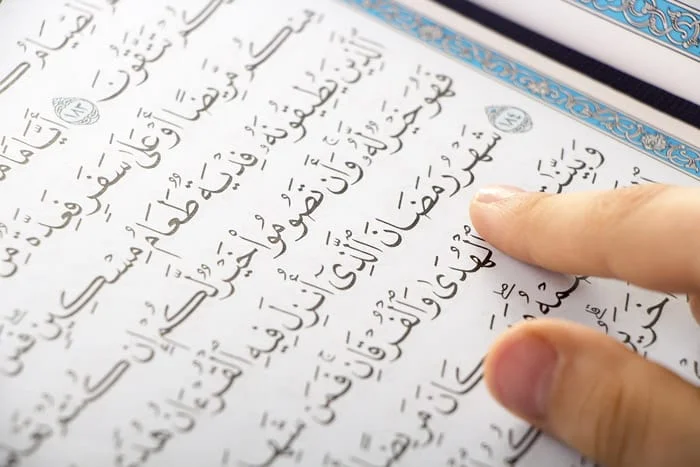 الصِّيَامُ
كُمْ تَتَّقُونَ ١٨٣ أَيَّامًا
مِنكُم مَّرِيضًا أَوْ عَلَىٰ سَفَرٍ فَعِدَّةٌ مِّنْ
الَّذِينَ يُطِيقُونَهُ فِدْيَةٌ طَعَامُ مِسْكِينٍ فَمَن
فَهُوَ خَيْرٌ لَّهُ وَأَن تَصُومُوا خَيْرٌ لَّكُمْ إِن كُنتُمْ
١٨٤ شَهْرُ رَمَضَانَ الَّذِي أُنزِلَ فِيهِ الْقُرْءَانُ
وَبَيِّنَـٰتٍ الْهُدَىٰ وَالْفُرْقَانِ فَمَن شَهِدَ
كَانَ مَرِيضًا